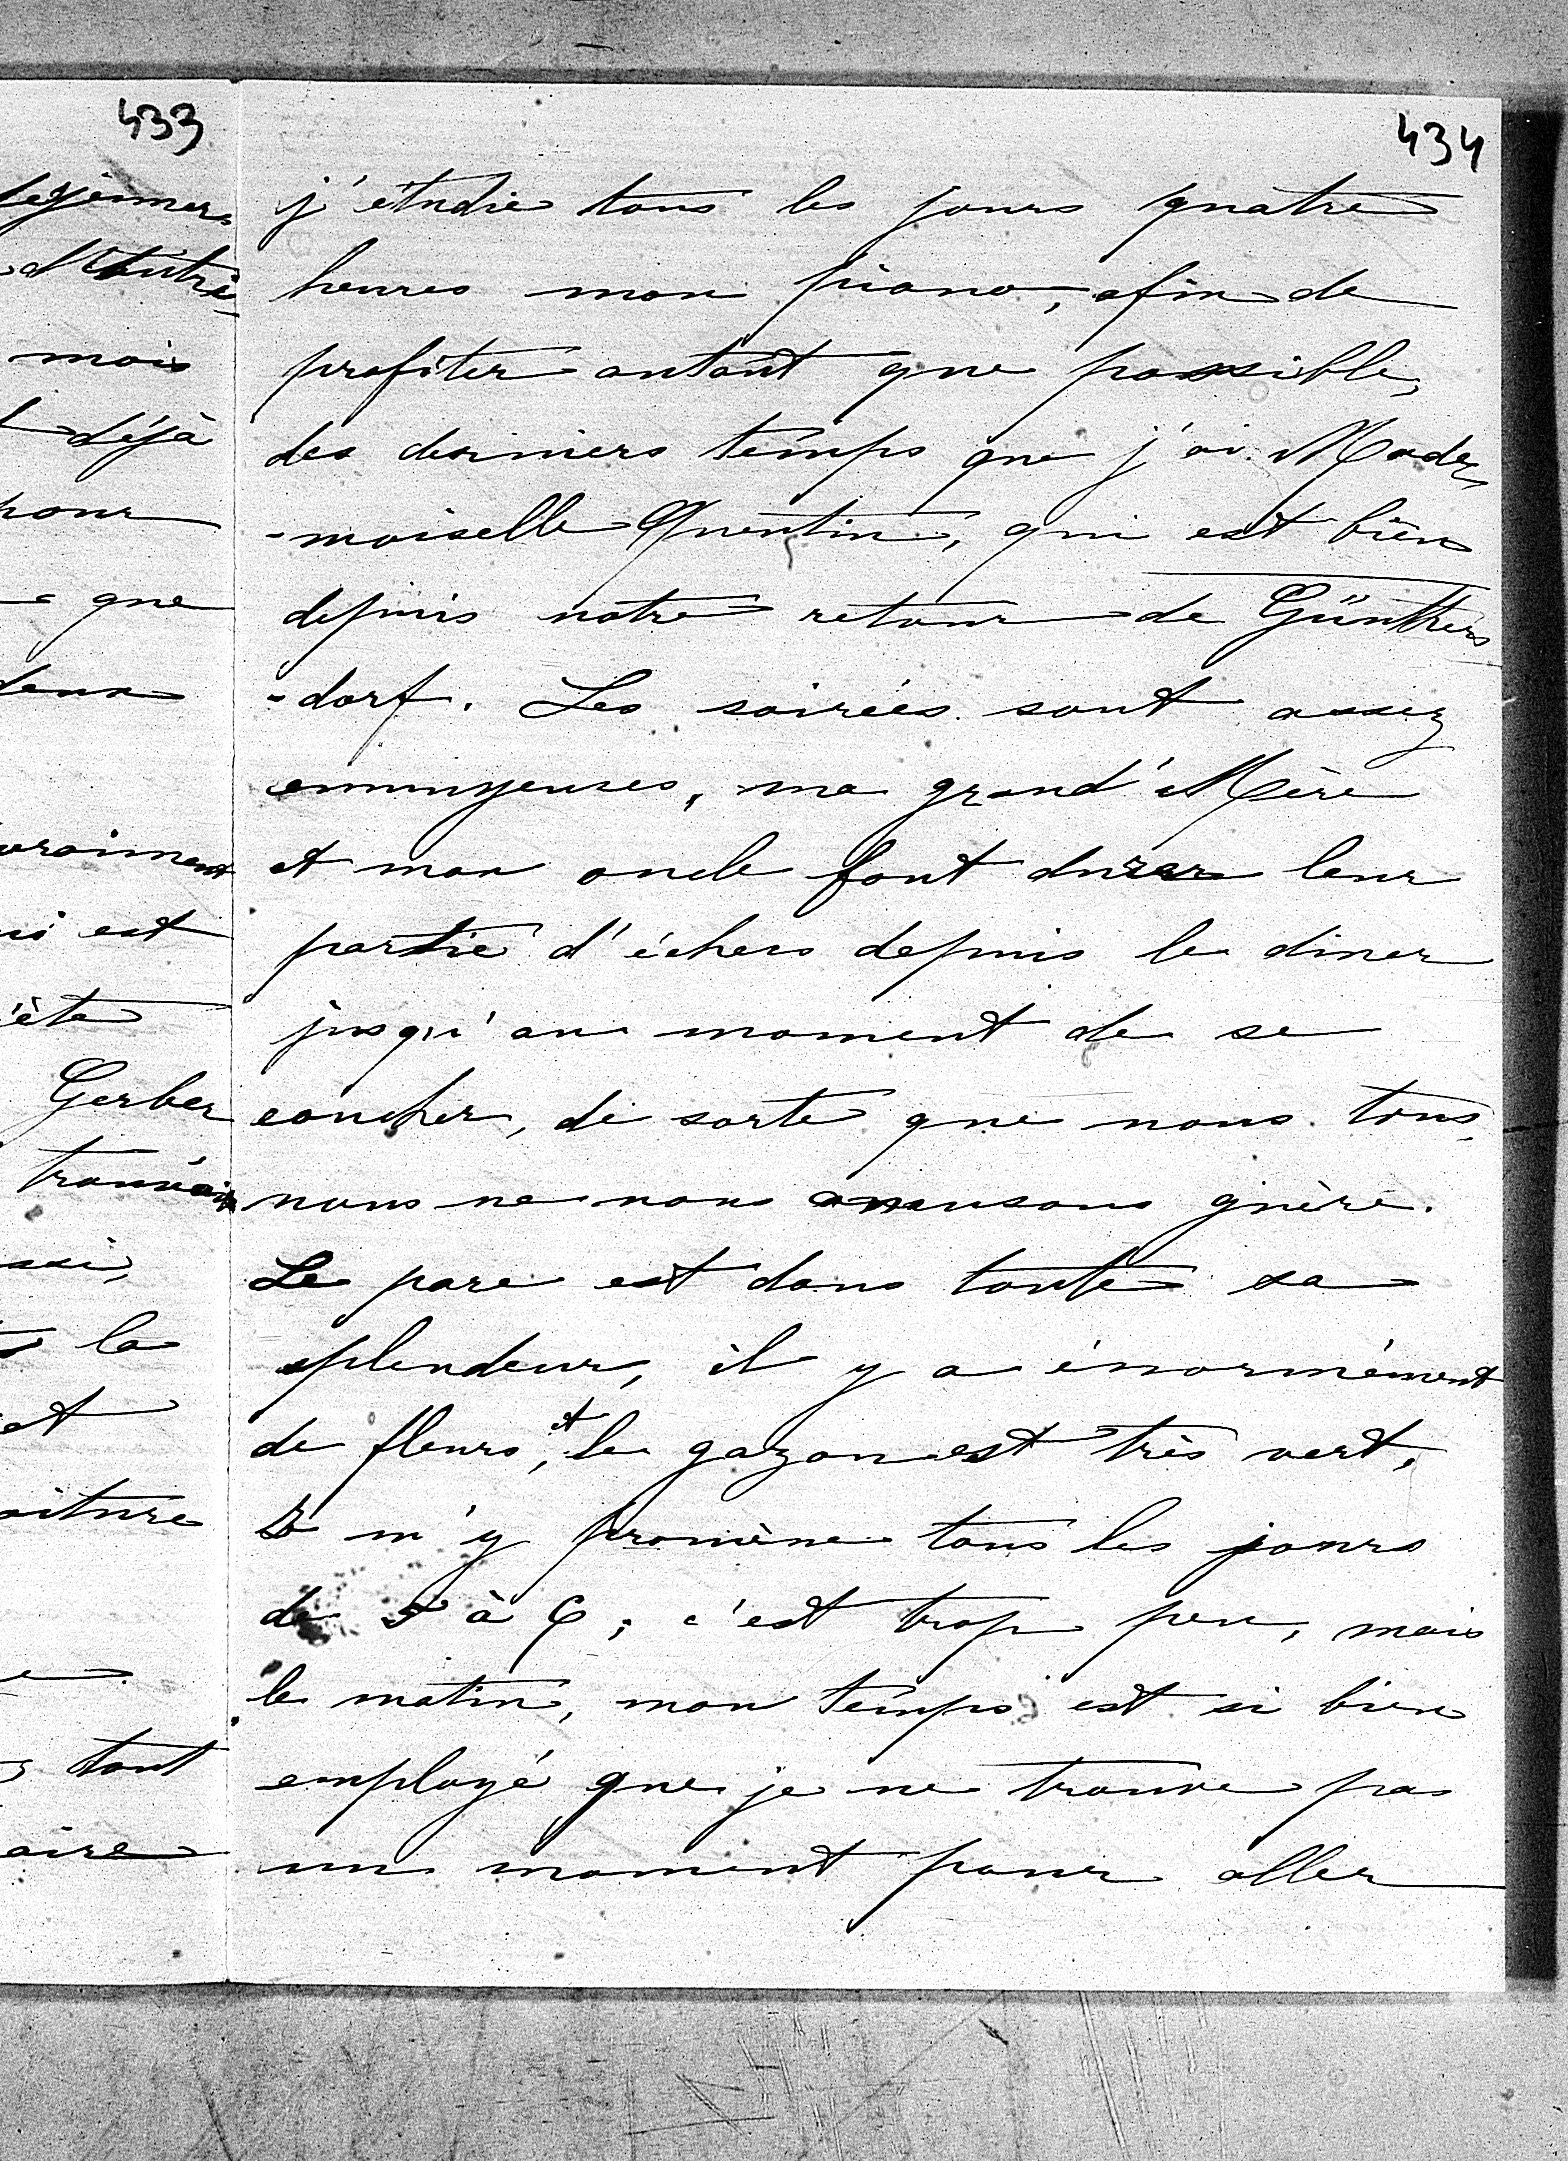 433
déjeuner
d'Autri-
mois
déjà
pour
que
deux
vraiment
est
Gerber
trouvais
la
et
voiture
tout
434
j'étudie tous les jours quatre
heures mon piano, afin de
profiter autant que possible,
des derniers temps que j'ai Made-
-moiselle Quentin, qui est bien
depuis notre retour de Günthers
-dorf. Les soirées sont assez
ennuyeuses, ma grand'Mère
et mon oncle font durer leur
partie d'échecs depuis le diner
jusqu'au moment de se
coucher, de sorte que nous tous,
nous ne nous amusons guère.
Le parc est dans toute sa
splendeur, il y a énormément
de fleurs, et le gazon est très vert.
Je m'y promène tous les jours
de 5 à 6; c'est trop peu, mais
le matin, mon temps est si bien
employé que je ne trouve pas
un moment pour aller